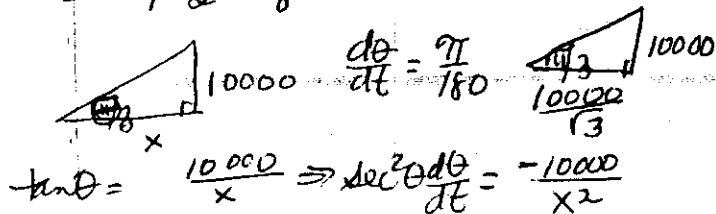 10000 dθ/dt = π/180 π/3 10000
θ x 10000/√3
tanθ = 10000/x ⇒ sec²θ dθ/dt = -10000/x²